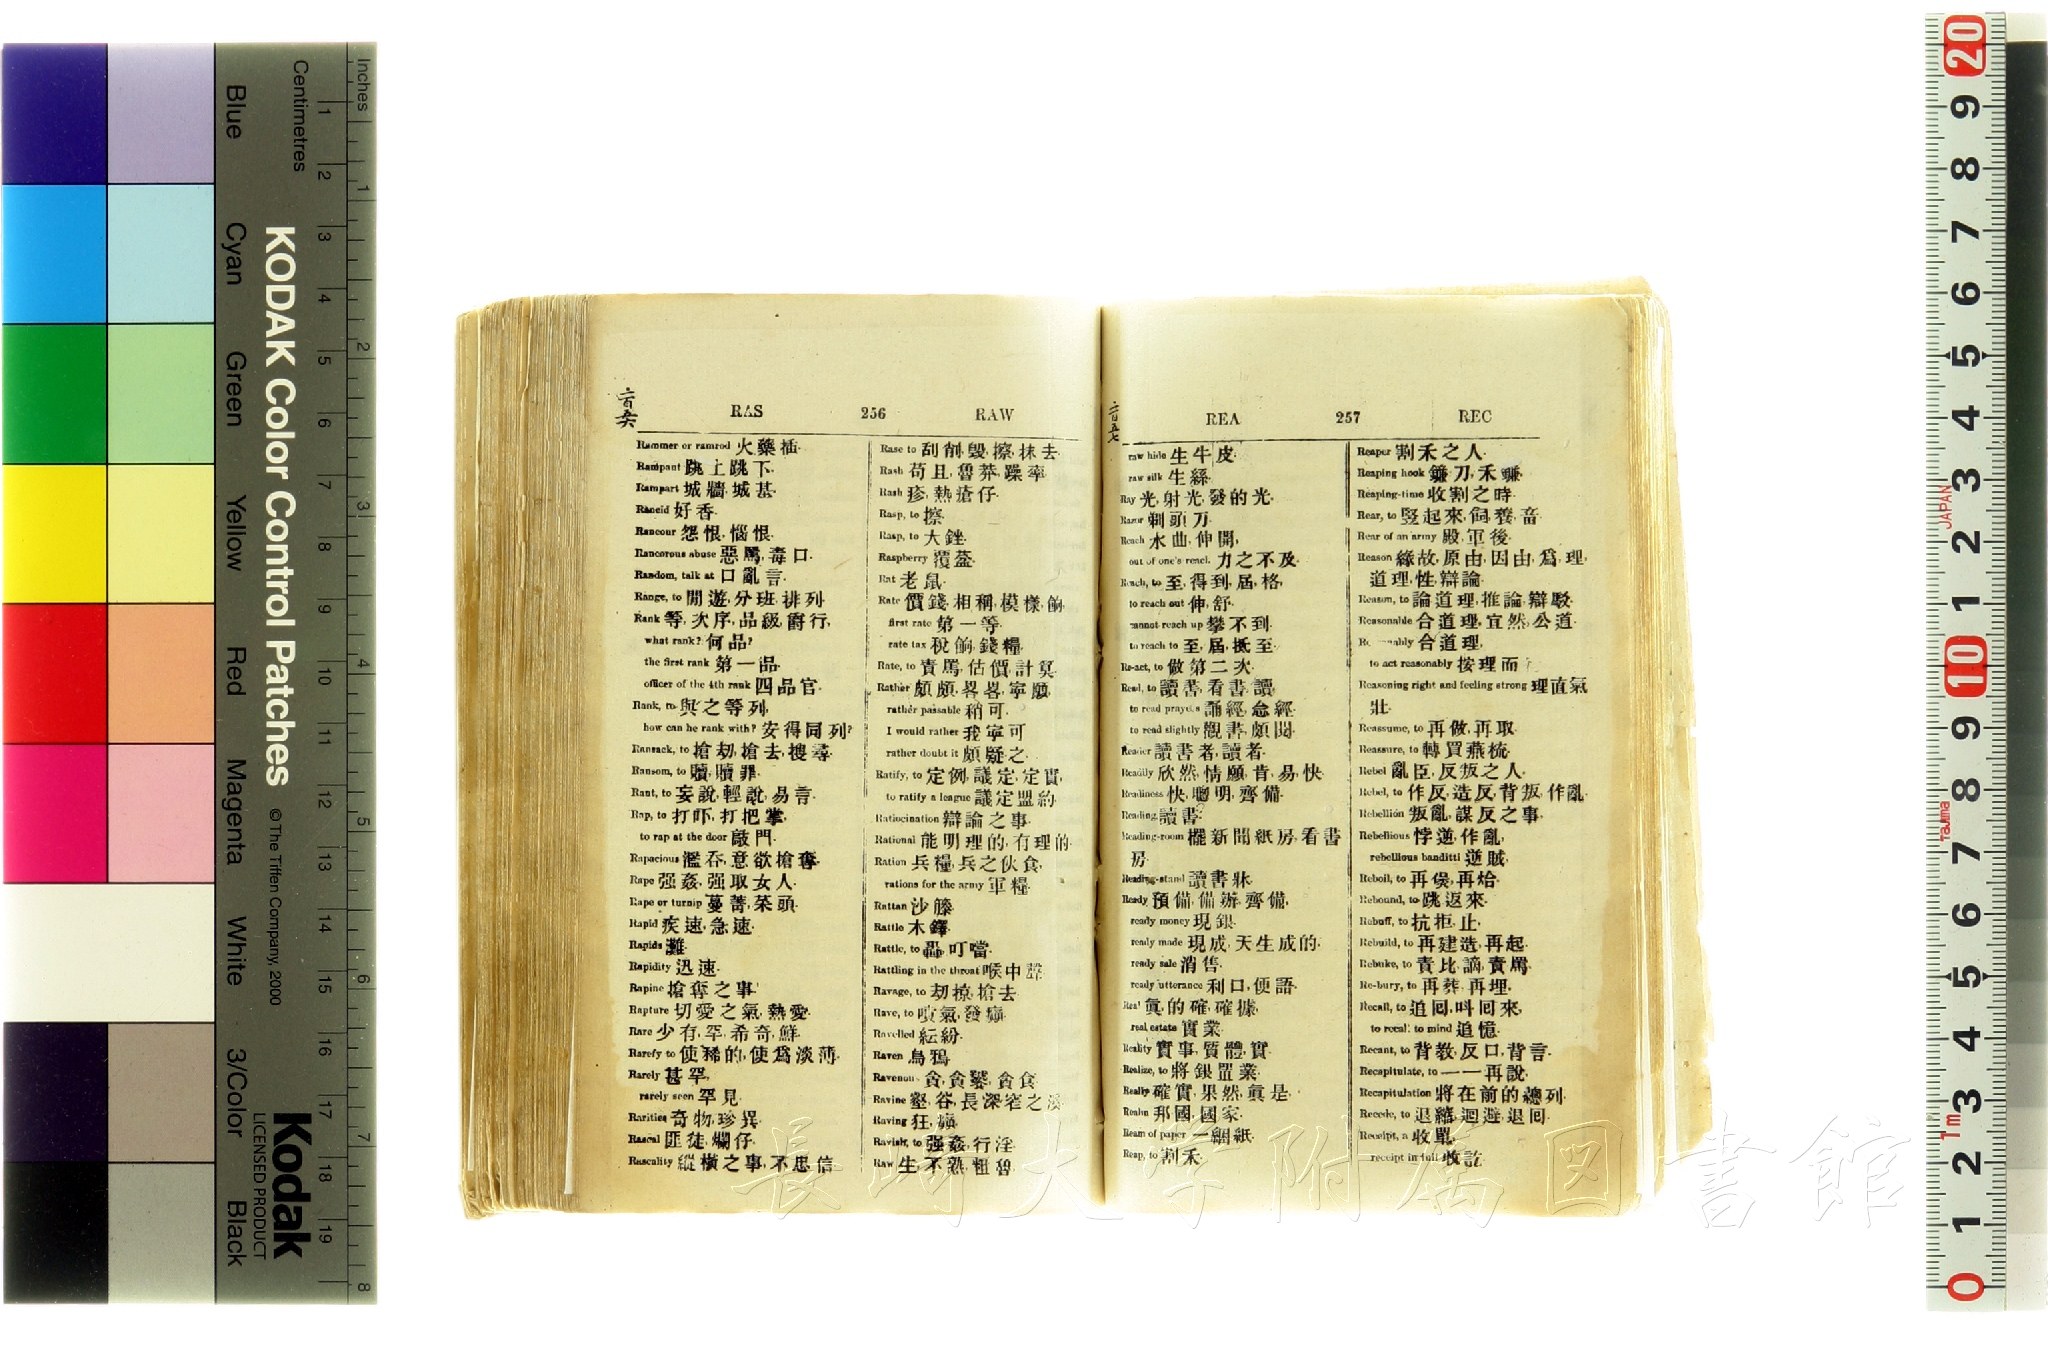 Blue
Cyan
Green
Yellow
Red
Magenta
White
3/Color
Black
Centimetres
KODAK Color Control Patches
© The Tiffen Company, 2000
Kodak
LICENSED PRODUCT
Inches
1 2 3 4 5 6 7 8 9 10 11 12 13 14 15 16 17 18 19
1 2 3 4 5 6 7 8
二百五六
RAS 256 RAW
Rammer or ramrod 火藥插
Rampant 跳上跳下
Rampart 城牆,城基
Rancid 好香
Rancour 怨恨,惱恨
Rancorous abuse 惡罵,毒口
Random, talk at 口亂言
Range, to 閒遊,分班,排列
Rank 等,次序,品級,爵行,
what rank? 何品?
the first rank 第一品
officer of the 4th rank 四品官
Rank, to 與之等列
how can he rank with? 安得同列?
Ransack, to 搶刼,搶去,搜尋
Ransom, to 贖,贖罪
Rant, to 妄說,輕說,易言
Rap, to 打吓,打把掌,
to rap at the door 敲門
Rapacious 濫吞,意欲搶奪
Rape 强姦,强取女人
Rape or turnip 蔓菁,菜頭
Rapid 疾速,急速
Rapids 灘
Rapidity 迅速
Rapine 搶奪之事
Rapture 切愛之氣,熱愛
Rare 少有,罕,希奇,鮮
Rarefy to 使稀的,使爲淡薄
Rarely 甚罕,
rarely seen 罕見
Rarities 奇物,珍異
Rascal 匪徒,爛仔
Rascality 縱橫之事,不忠信
Rase to 刮削,毀,擦,抹去
Rash 苟且,魯莽,躁率
Rash 疹,熱瘡仔
Rasp, to 擦
Rasp, to 大銼
Raspberry 覆盆
Rat 老鼠
Rate 價錢,相稱,模樣,餉
first rate 第一等
rate tax 稅餉,錢糧
Rate, to 責罵,估價,計算
Rather 頗頗,畧畧,寧願
rather passable 稍可
I would rather 我寧可
rather doubt it 頗疑之
Ratify, to 定例,議定,定實,
to ratify a league 議定盟約
Ratiocination 辯論之事
Rational 能明理的,有理的
Ration 兵糧,兵之伙食,
rations for the army 軍糧
Rattan 沙籐
Rattle 木鐸
Rattle, to 轟,叮噹
Rattling in the throat 喉中聲
Ravage, to 刼掠,搶去
Rave, to 噴氣,發癲
Ravelled 紜紛
Raven 烏鴉
Ravenous 貪,貪饕,貪食
Ravine 壑,谷,長深窄之溪
Raving 狂,癲
Ravish, to 强姦,行淫
Raw 生,不熟,粗魯
二百五七
REA 257 REC
raw hide 生牛皮
raw silk 生絲
Ray 光,射光,發的光
Razor 剃頭刀
Reach 水曲,伸開,
out of one's reach 力之不及
Reach, to 至,得到,屆,格,
to reach out 伸,舒
cannot reach up 攀不到
to reach to 至,屆,抵至
Re-act, to 做第二次
Read, to 讀書,看書,讀
to read prayers 誦經,念經
to read slightly 觀書,頗閱
Reader 讀書者,讀者
Readily 欣然,情願,肯,易,快
Readiness 快,聰明,齊備
Reading 讀書
Reading-room 擺新聞紙房,看書
房
Reading-stand 讀書牀
Ready 預備,備辦,齊備,
ready money 現銀
ready made 現成,天生成的
ready sale 消售
ready utterance 利口,便語
Real 眞,的確,確據,
real estate 實業
Reality 實事,質體,實
Realize, to 將銀置業
Really 確實,果然,眞是
Realm 邦國,國家
Ream of paper 一綑紙
Reap, to 割禾
Reaper 割禾之人
Reaping hook 鐮刀,禾鐮
Reaping-time 收割之時
Rear, to 竪起來,飼,養,畜
Rear of an army 殿,軍後
Reason 緣故,原由,因由,爲,理,
道理,性,辯論
Reason, to 論道理,推論,辯駁
Reasonable 合道理,宜然,公道
Reasonably 合道理,
to act reasonably 按理而
Reasoning right and feeling strong 理直氣
壯
Reassume, to 再做,再取
Reassure, to 轉買燕梳
Rebel 亂臣,反叛之人
Rebel, to 作反,造反,背叛,作亂
Rebellion 叛亂,謀反之事
Rebellious 悖逆,作亂,
rebellious banditti 逆賊
Reboil, to 再煲,再烚
Rebound, to 跳返來
Rebuff, to 抗拒,止
Rebuild, to 再建造,再起
Rebuke, to 責比,謫,責罵
Re-bury, to 再葬,再埋
Recall, to 追回,呌回來,
to recall to mind 追憶
Recant, to 背敎,反口,背言
Recapitulate, to 一一再說
Recapitulation 將在前的總列
Recede, to 退縮,迴避,退回
Receipt, a 收單
receipt in full 收訖
長崎大学附属図書館
0 1 2 3 4 5 6 7 8 9 10 1 2 3 4 5 6 7 8 9 20
1m
Tajima
JAPAN